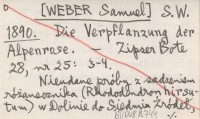 [WEBER Samuel] S.W.
1890. Die Verpflanzung der
Alpenrose. — Zipser Bote
28, nr 25: 3-4.
Nieudane próby z sadzeniem
różanecznika (Rhododendron hirsu-
tum) w Dolinie do Siedmiu Źródeł,